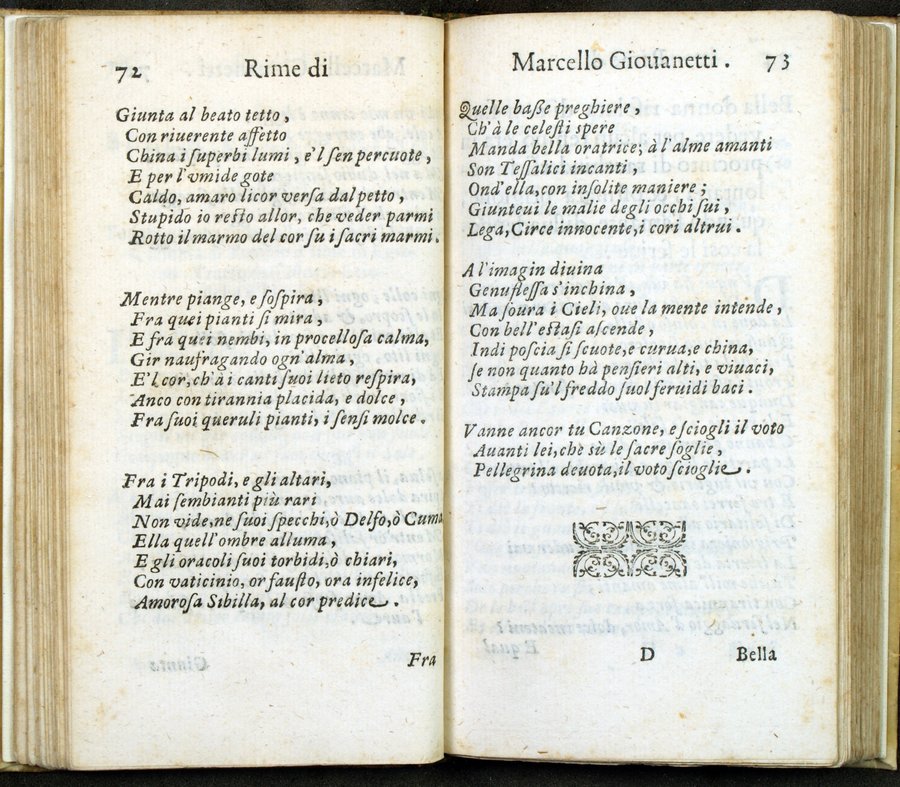 72 Rime di
Giunta al beato tetto,
Con riuerente affetto
China i ſuperbi lumi, e'l ſen percuote,
E per l'vmide gote
Caldo, amaro licor verſa dal petto,
Stupido io reſto allor, che veder parmi
Rotto il marmo del cor ſu i ſacri marmi.
Mentre piange, e ſoſpira,
Fra quei pianti ſi mira,
E fra quei nembi, in procelloſa calma,
Gir naufragando ogn'alma,
E'l cor, ch'à i canti ſuoi lieto reſpira,
Anco con tirannia placida, e dolce,
Fra ſuoi queruli pianti, i ſenſi molce.
Fra i Tripodi, e gli altari,
Mai ſembianti più rari
Non vide, ne ſuoi ſpecchi, ò Delfo, ò Cuma
Ella quell'ombre alluma,
E gli oracoli ſuoi torbidi, ò chiari,
Con vaticinio, or fauſto, ora infelice,
Amoroſa Sibilla, al cor predice.
Fra
Marcello Giouanetti. 73
Quelle baſſe preghiere,
Ch'à le celeſti spere
Manda bella oratrice; à l'alme amanti
Son Teſſalici incanti,
Ond'ella, con inſolite maniere;
Giunteui le malie degli occhi ſui,
Lega, Circe innocente, i cori altrui.
A l'imagin diuina
Genufleſſa s'inchina,
Ma ſoura i Cieli, oue la mente intende,
Con bell'eſtaſi aſcende,
Indi poſcia ſi ſcuote, e curua, e china,
ſe non quanto hà penſieri alti, e viuaci,
Stampa ſu'l freddo ſuol feruidi baci.
Vanne ancor tu Canzone, e ſciogli il voto
Auanti lei, che sù le ſacre ſoglie,
Pellegrina deuota, il voto ſcioglie.
D Bella